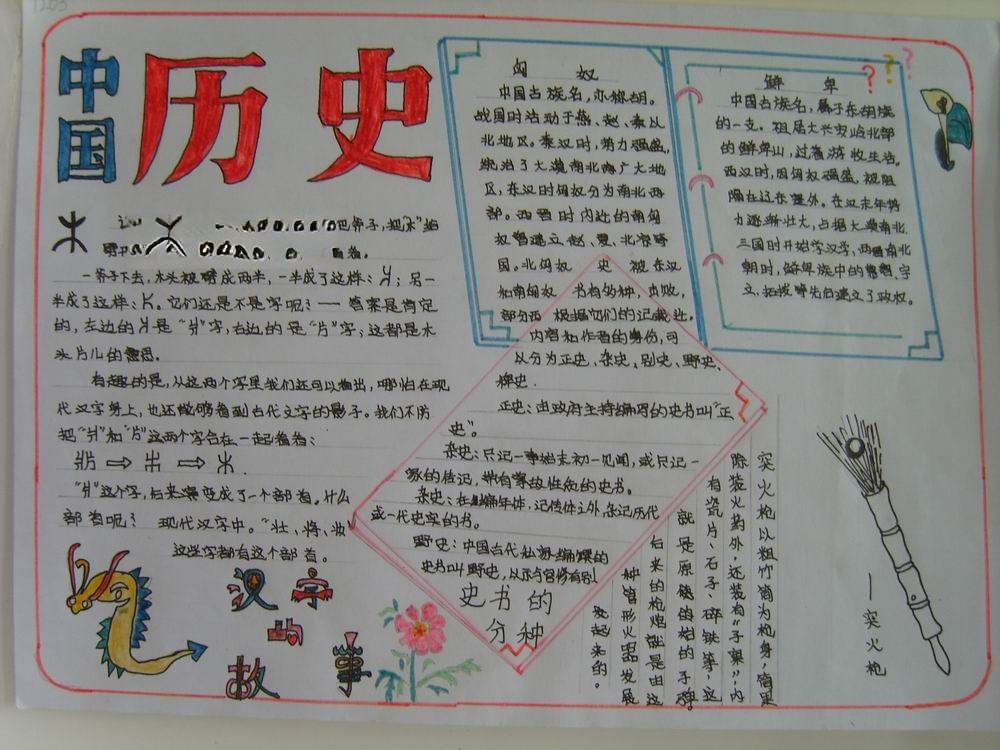 中国
历史
把斧子,把"木"给
一斧子下去,木头被劈成两半,一半成了这样:爿;另一
半成了这样:K。它们还是不是字呢?——答案是肯定
的,左边的爿是"爿"字,右边的是"片"字;这都是木
头片儿的意思。
有趣的是,从这两个字里我们还可以看出,哪怕在现
代汉字身上,也还能够看到古代文字的影子。我们不妨
把"爿"和"片"这两个字合在一起看看:
"爿"这个字,后来演变成了一个部首。什么
部首呢? 现代汉字中。"壮、将、妆
这些字都有这个部首。
汉字
与
故事
匈 奴
中国古族名,亦称胡。
战国时活动于燕、赵、秦以
北地区。秦汉时,势力强盛,
统治了大漠南北广大地
区,东汉时匈奴分为南北两
部。西晋时内迁的南匈
奴曾建立赵、夏、北凉等
国。北匈奴 被东汉
和南匈奴
部分西 迁。
鲜 卑
中国古族名,属于东胡族
的一支。祖居大兴安岭北部
的鲜卑山,过着游牧生活。
西汉时,因匈奴强盛,被阻
隔在辽东塞外。在汉末年势
力逐渐壮大,占据大漠南北,
三国时开始学汉字,两晋南北
朝时,鲜卑族中的慕容、宇
文、拓拔等先后建立了政权。
???
史
书有多种,
根据它们的记载
内容和作者的身份,可
以分为正史、杂史、别史、野史、
稗史.
正史:由政府主持编写的史书叫"正
史"。
杂史:只记一事始末初一见闻,或只记一
家的传记,带有掌故性质的史书。
杂史:在编年体,记传体之外,杂记历代
或一代史实的书。
野史:中国古代私家编撰的
史书叫野史,从示与官修有别
史书的
分种
突火枪以粗竹筒为枪身,筒里
除装火药外,还装有"子窠",内
有瓷片、石子、碎铁等,这
就是原始的子弹。
后来的枪炮就是由这
种管形火器发展
发起来的。
——突火枪